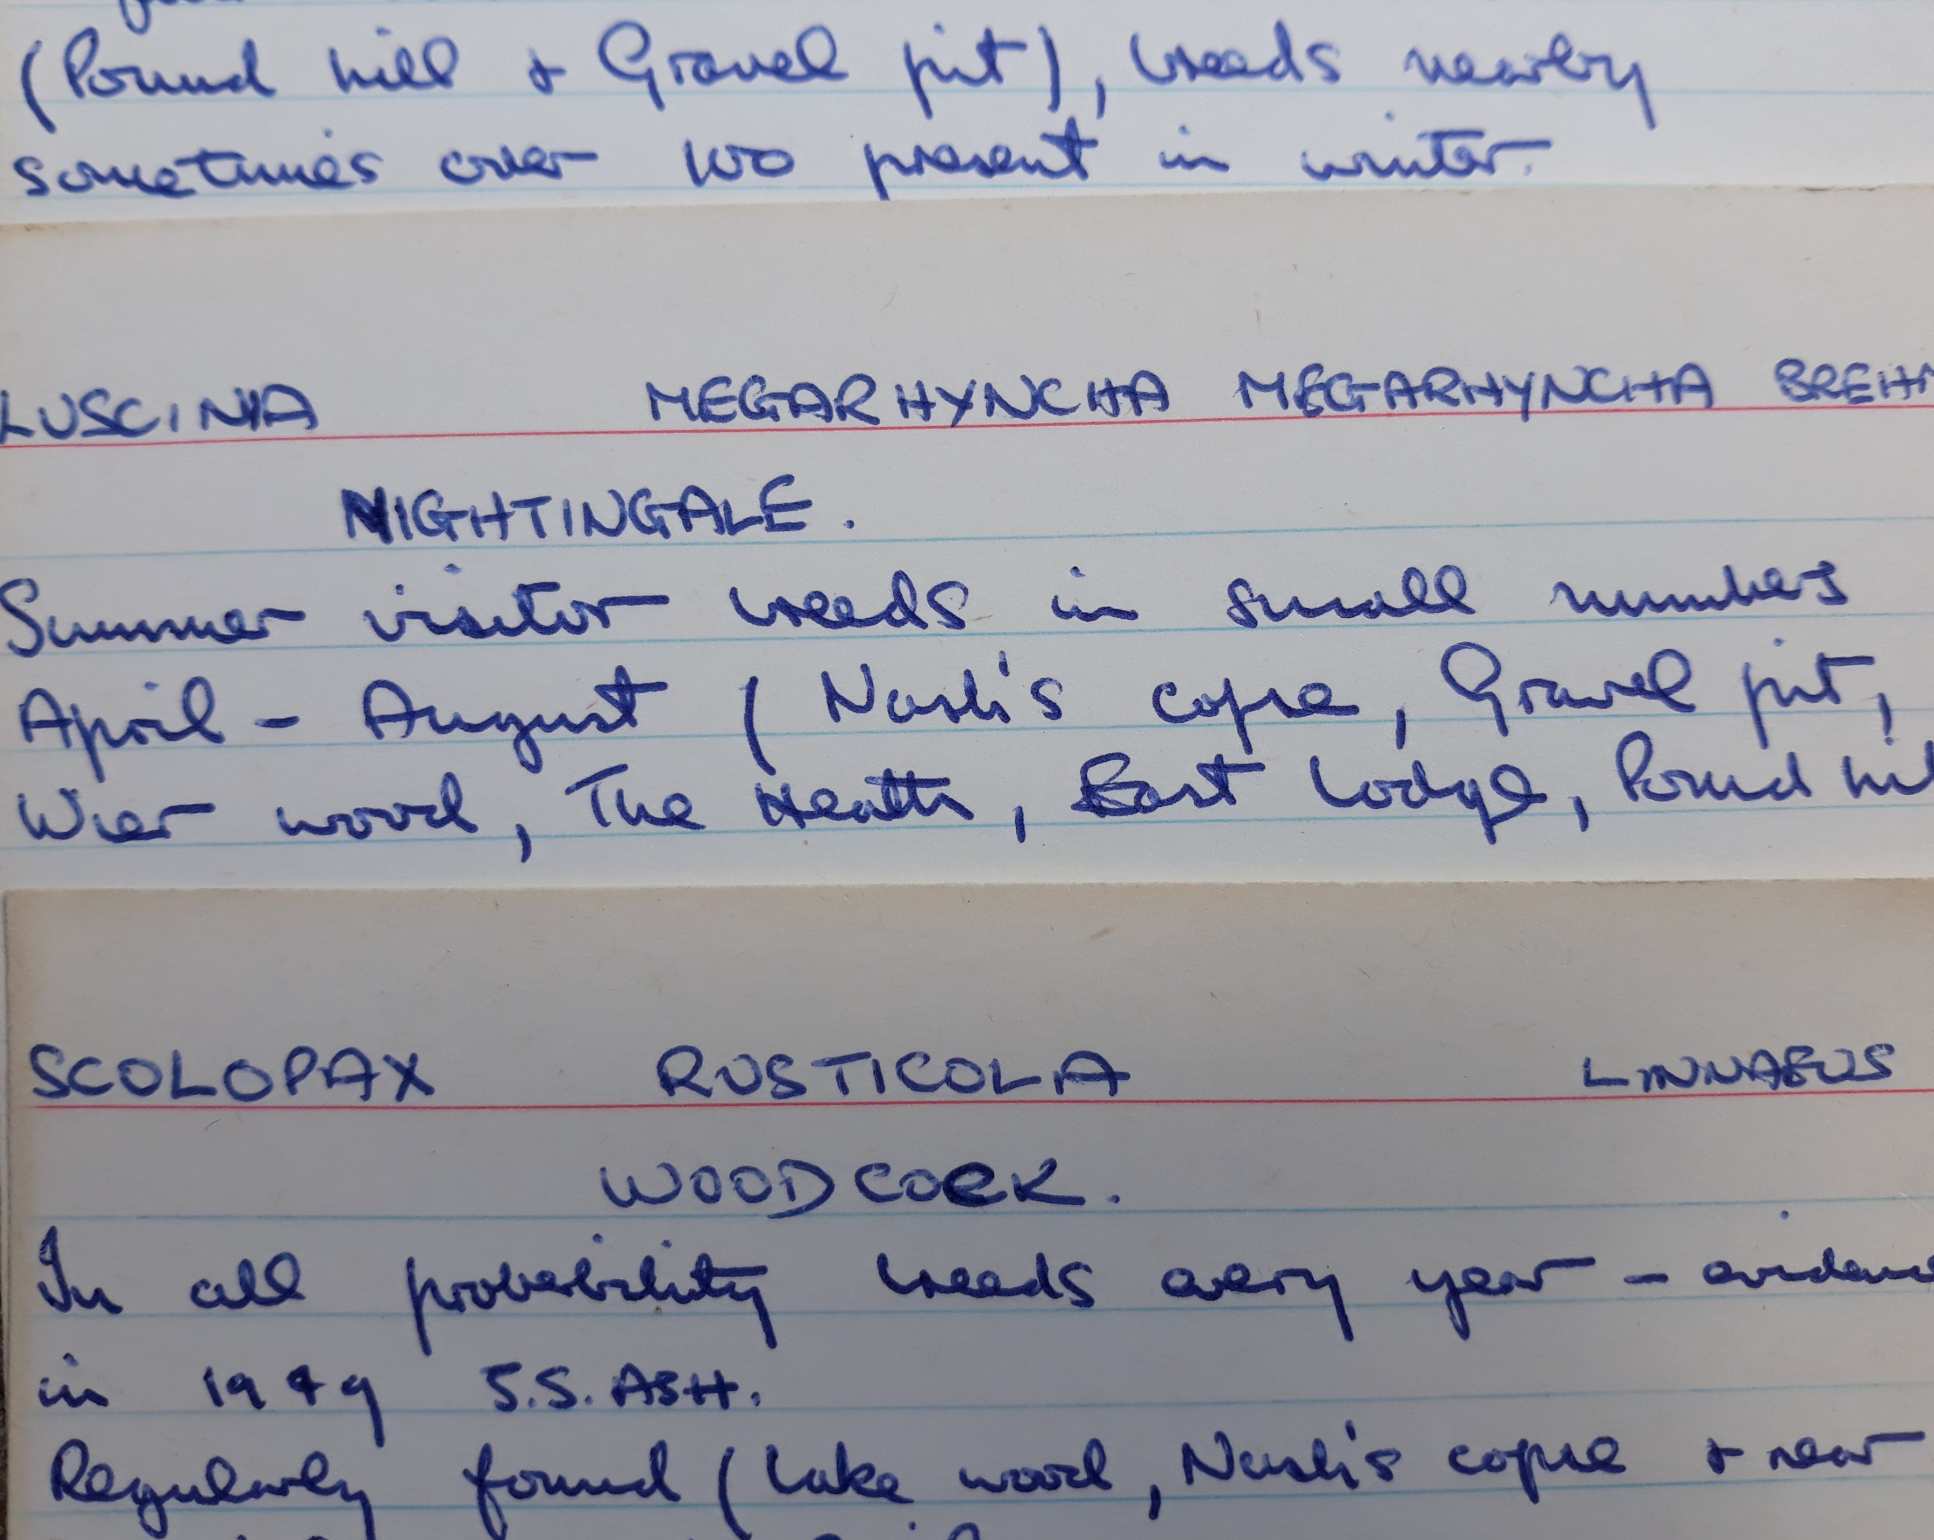 (Pound hill & Gravel pit), breeds nearby
sometimes over 100 present in winter.
LUSCINIA MEGARHYNCHA MEGARHYNCHA BREHM
NIGHTINGALE.
Summer visitor breeds in small numbers
April - August (Nash's copse, Gravel pit,
Wier wood, The Heath, East Lodge, Pound hill
SCOLOPAX RUSTICOLA LINNAEUS
WOODCOCK.
In all probability breeds every year - evidence
in 1949 S.S. ASH.
Regularly found (Lake wood, Nash's copse & near